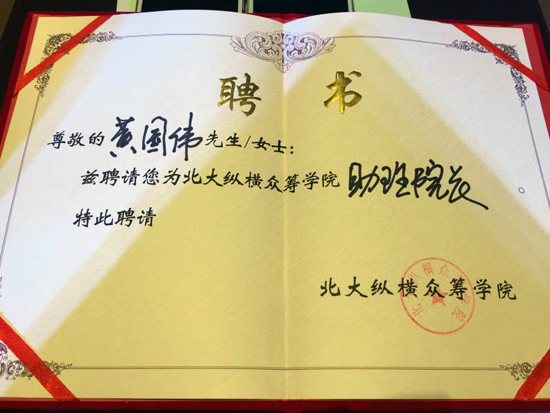 聘 书
尊敬的黄国伟先生/女士：
兹聘请您为北大纵横众筹学院助理院长
特此聘请
北大纵横众筹学院